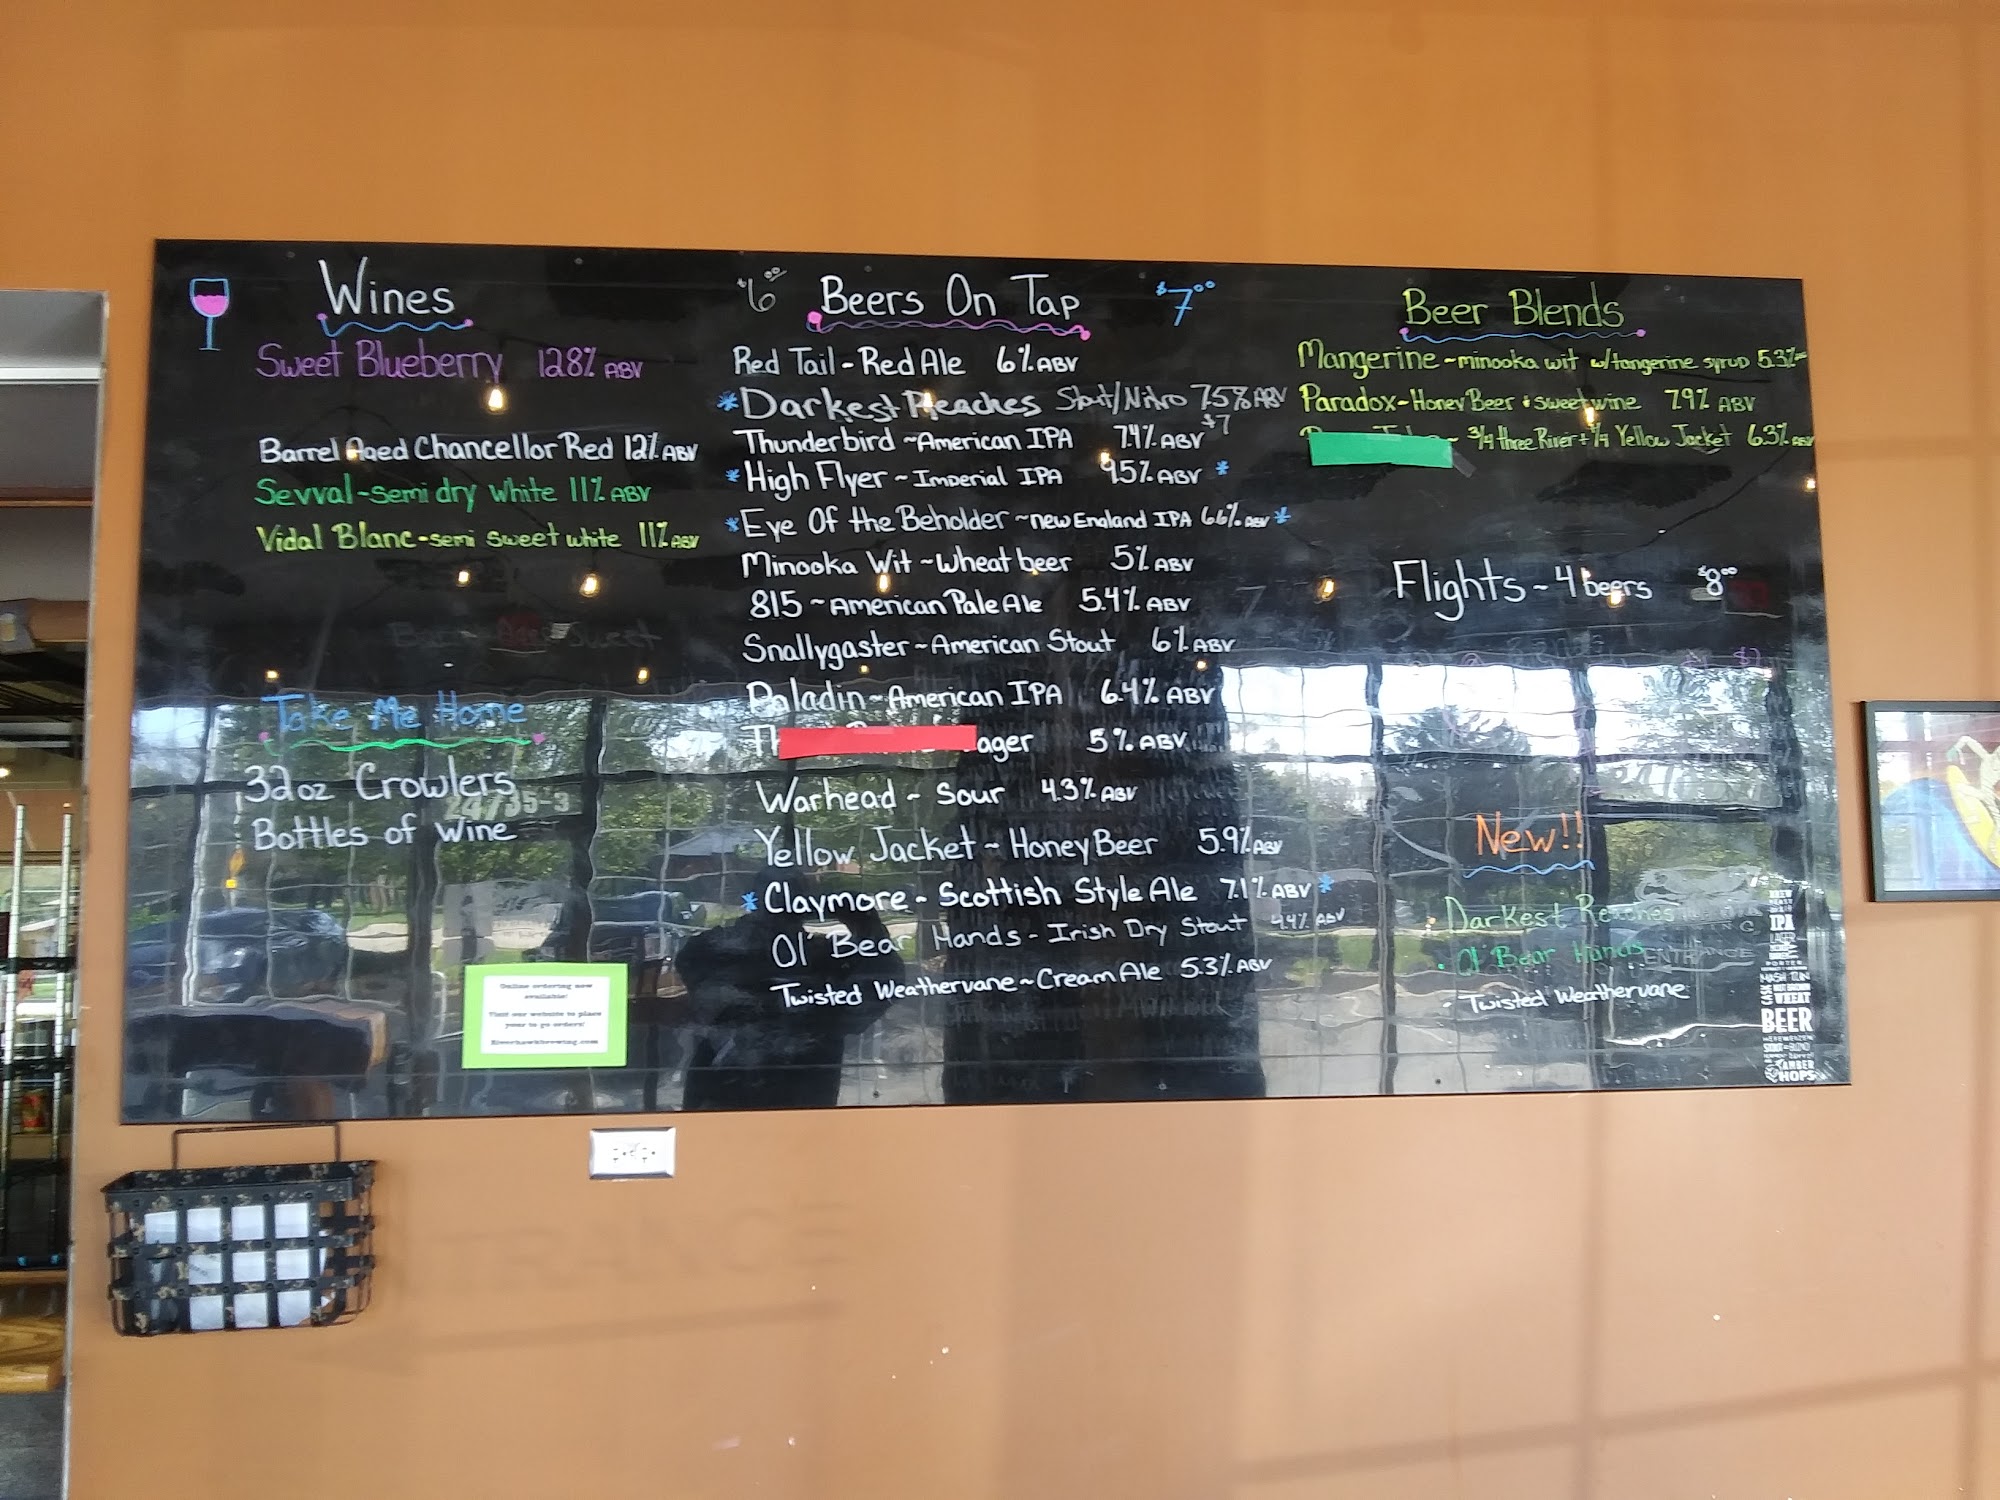 Wines
Sweet Blueberry 12.8% ABV
Barrel Aged Chancellor Red 12% ABV
Sevval-semi dry white 11% ABV
Vidal Blanc-semi sweet white 11% ABV
Take Me Home
32oz Crowlers
Bottles of wine
Online ordering now
available!
Visit our website to place
your to go orders!
Riverhawkbrewing.com
$6.00 Beers On Tap $7.00
Red Tail - Red Ale 6% ABV
*Darkest Reaches Stout/Nitro 7.5% ABV
Thunderbird ~American IPA 7.4% ABV $7
*High Flyer ~ Imperial IPA 9.5% ABV *
*Eye Of the Beholder ~new England IPA 6.6% ABV *
Minooka Wit ~Wheat beer 5% ABV
815 ~American Pale Ale 5.4% ABV
Snallygaster ~American Stout 6% ABV
Paladin ~American IPA 6.4% ABV
ager 5% ABV
Warhead ~ Sour 4.3% ABV
Yellow Jacket ~ Honey Beer 5.9% ABV
*Claymore ~ Scottish Style Ale 7.1% ABV *
Ol' Bear Hands - Irish Dry Stout 4.4% ABV
Twisted Weathervane ~Cream Ale 5.3% ABV
Beer Blends
Mangerine ~minooka wit w/tangerine syrup 5.3%
Paradox-Honey Beer + sweet wine 7.9% ABV
~ 3/4 three River + 1/4 Yellow Jacket 6.3% ABV
Flights ~ 4 beers $8.00
New!!
· Darkest Reaches
· Ol' Bear Hands
· Twisted Weathervane
IPA
WHEAT
BEER
AMBER
HOPS